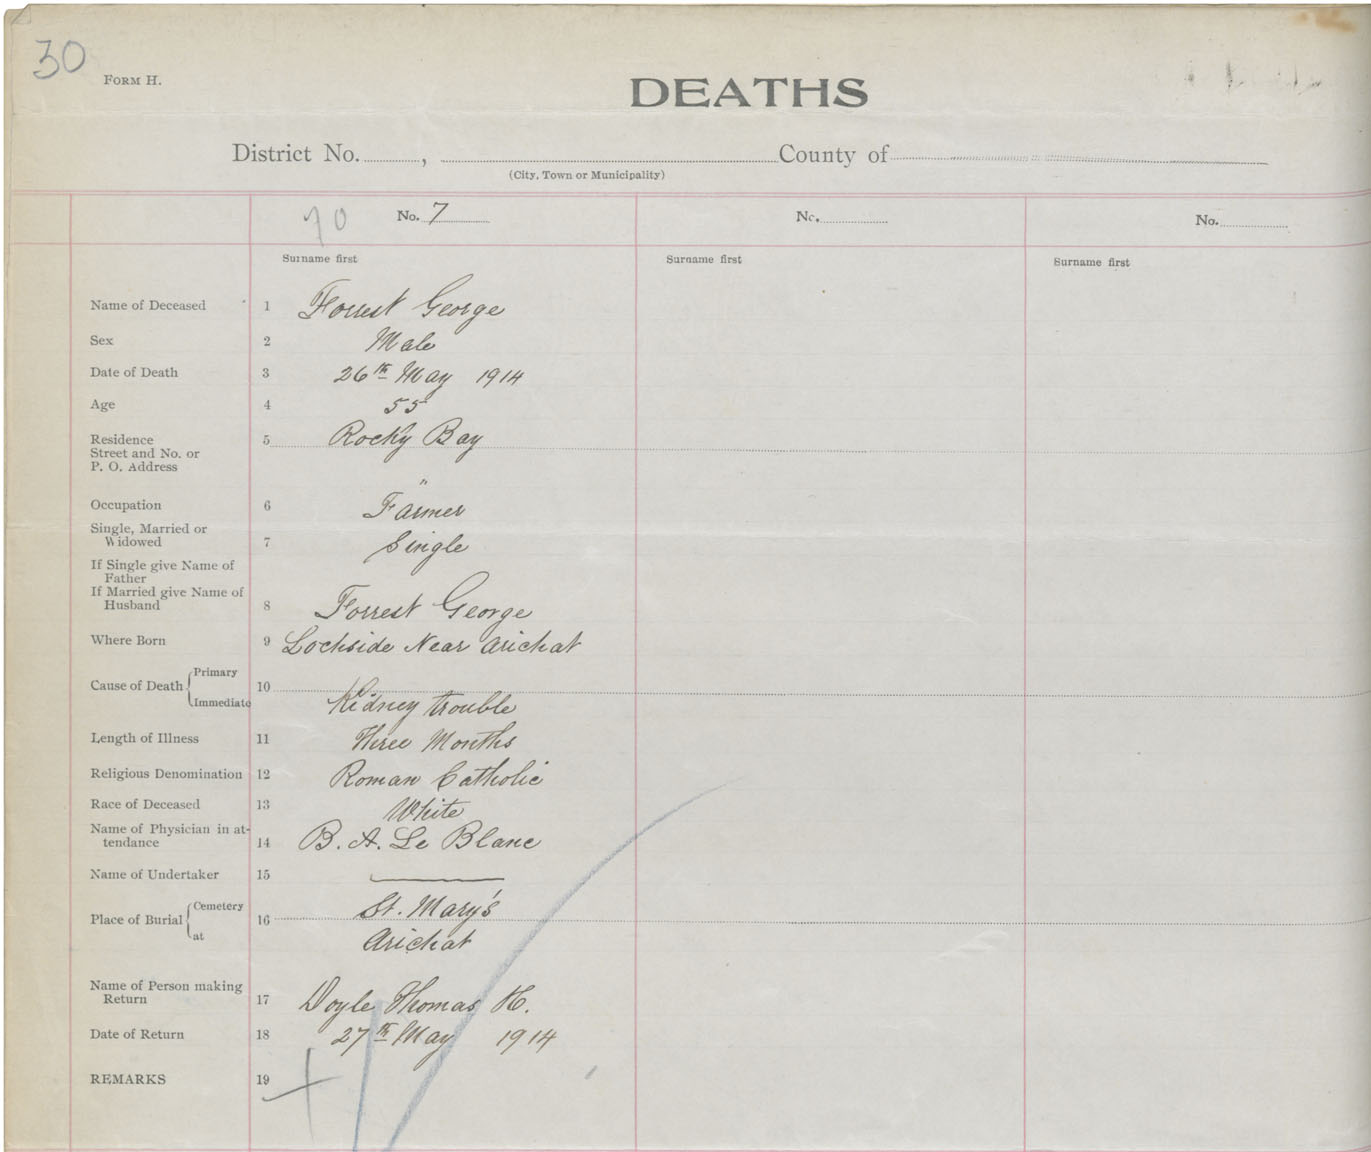 30
FORM H.
DEATHS
District No. , County of
(City, Town or Municipality)
70 No. 7 No. No.
Surname first Surname first Surname first
Name of Deceased 1 Forrest George
Sex 2 Male
Date of Death 3 26th May 1914
Age 4 55
Residence 5 Rocky Bay
Street and No. or
P. O. Address "
Occupation 6 Farmer
Single, Married or
Widowed 7 Single
If Single give Name of
Father
If Married give Name of
Husband 8 Forrest George
Where Born 9 Lochside Near Arichat
Cause of Death Primary 10
Immediate Kidney trouble
Length of Illness 11 Three Months
Religious Denomination 12 Roman Catholic
Race of Deceased 13 White
Name of Physician in at-
tendance 14 B. A. Le Blanc
Name of Undertaker 15
Place of Burial Cemetery 16 St. Mary's
at Arichat
Name of Person making
Return 17 Doyle Thomas H.
Date of Return 18 27th May 1914
REMARKS 19